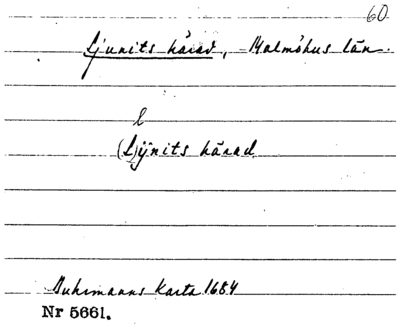 60
Ljunits härad, Malmöhus län.
L
(L)ÿnits härad
Buhrmanns Karta 1684
Nr 5661.